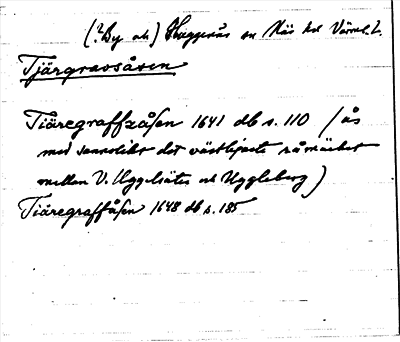 (? By och) Skaggenäs sn Näs hd Värml. L.
Tjärgravsåsen
Tiäregraffzåsen 1641 db s. 110 (ås
med sannolikt det västligaste råmärket
mellan V. Uggelsäter och Uggleberg)
Tiäregraffåsen 1648 db s. 185